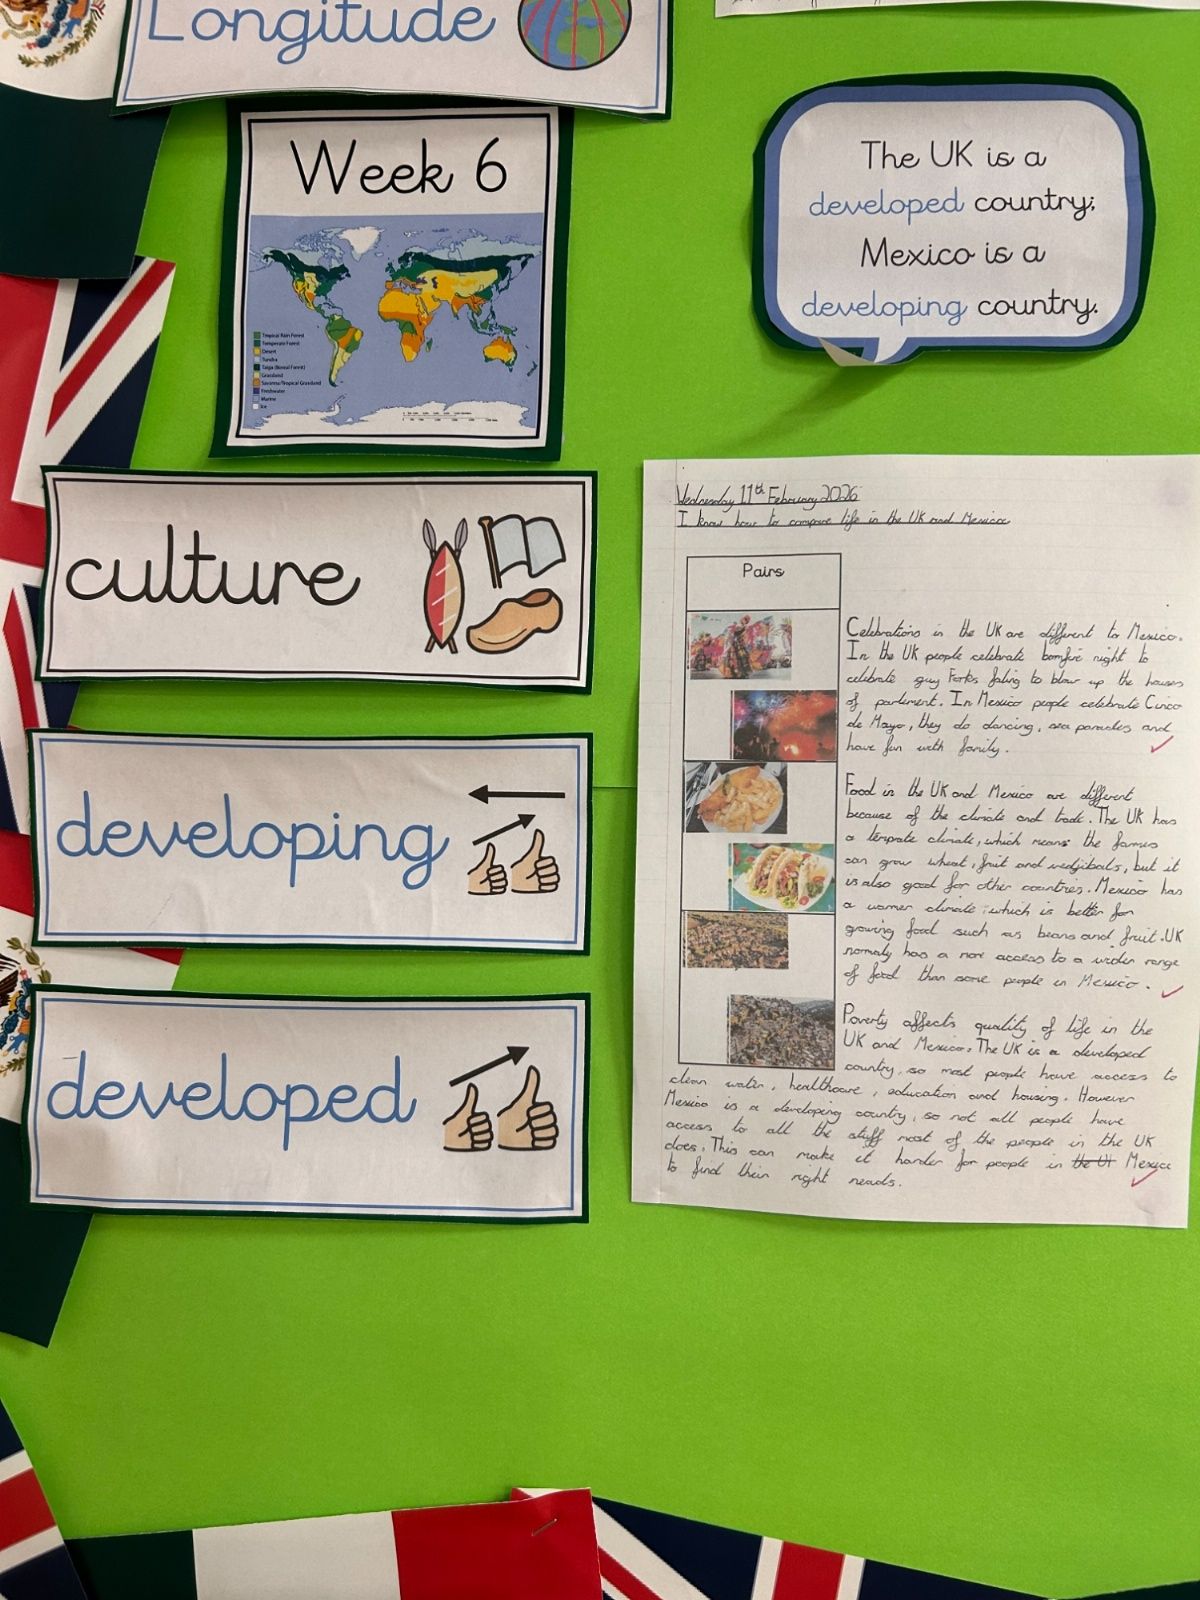 Longitude
Week 6
Tropical Rain Forest
Temperate Forest
Desert
Tundra
Taiga (Boreal Forest)
Grassland
Savanna/Tropical Grassland
Freshwater
Marine
Ice
culture
developing
developed
The UK is a
developed country;
Mexico is a
developing country.
Wednesday 11th February 2026
I know how to compare life in the UK and Mexico
Pairs
Celebrations in the UK are different to Mexico.
In the UK people celebrate bomfire night to
celebrate guy Forks faling to blow up the houses
of parliment. In Mexico people celebrate Cinco
de Mayo, they do dancing, sea parades and
have fun with family.
Food in the UK and Mexico are different
because of the climate and trade. The UK has
a temprate climate, which means the farmers
can grow wheat, fruit and vedjibals, but it
is also good for other countries. Mexico has
a warmer climate, which is better for
growing food such as beans and fruit. UK
normaly has a more access to a wider range
of food than some people in Mexico.
Poverty affects quality of life in the
UK and Mexico. The UK is a developed
country, so most people have access to
clean water, healthcare, education and housing. However
Mexico is a developing country, so not all people have
access to all the stuff most of the people in the UK
does. This can make it harder for people in the UK Mexico
to find their right needs.